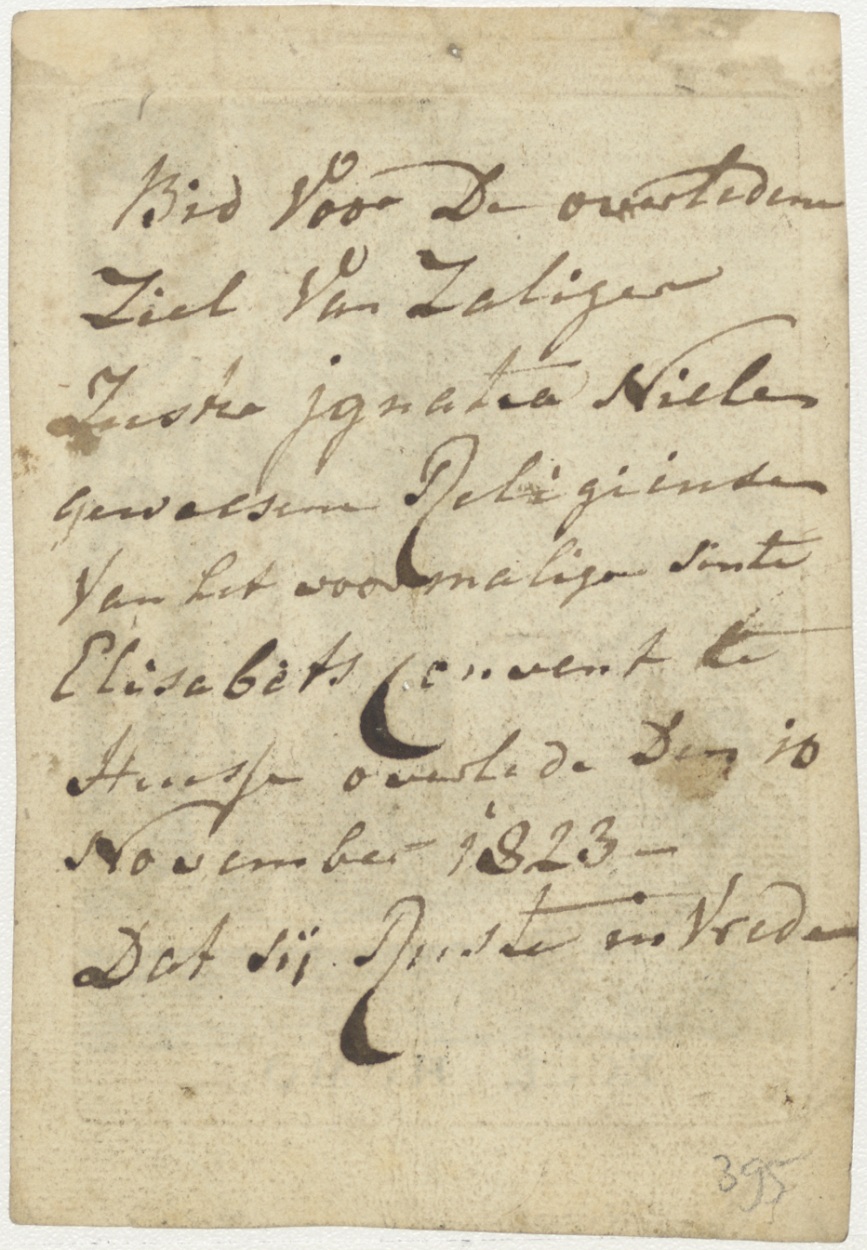 Bid Voor De overledene
Ziel Van Zaliger
Zuster jgnatia Nielen
geweesene Religieuse
Van het voormalige sinte
Elisabets Convent te
overlede Den 10
November 1823 –
Dat sij Ruste in Vrede
395